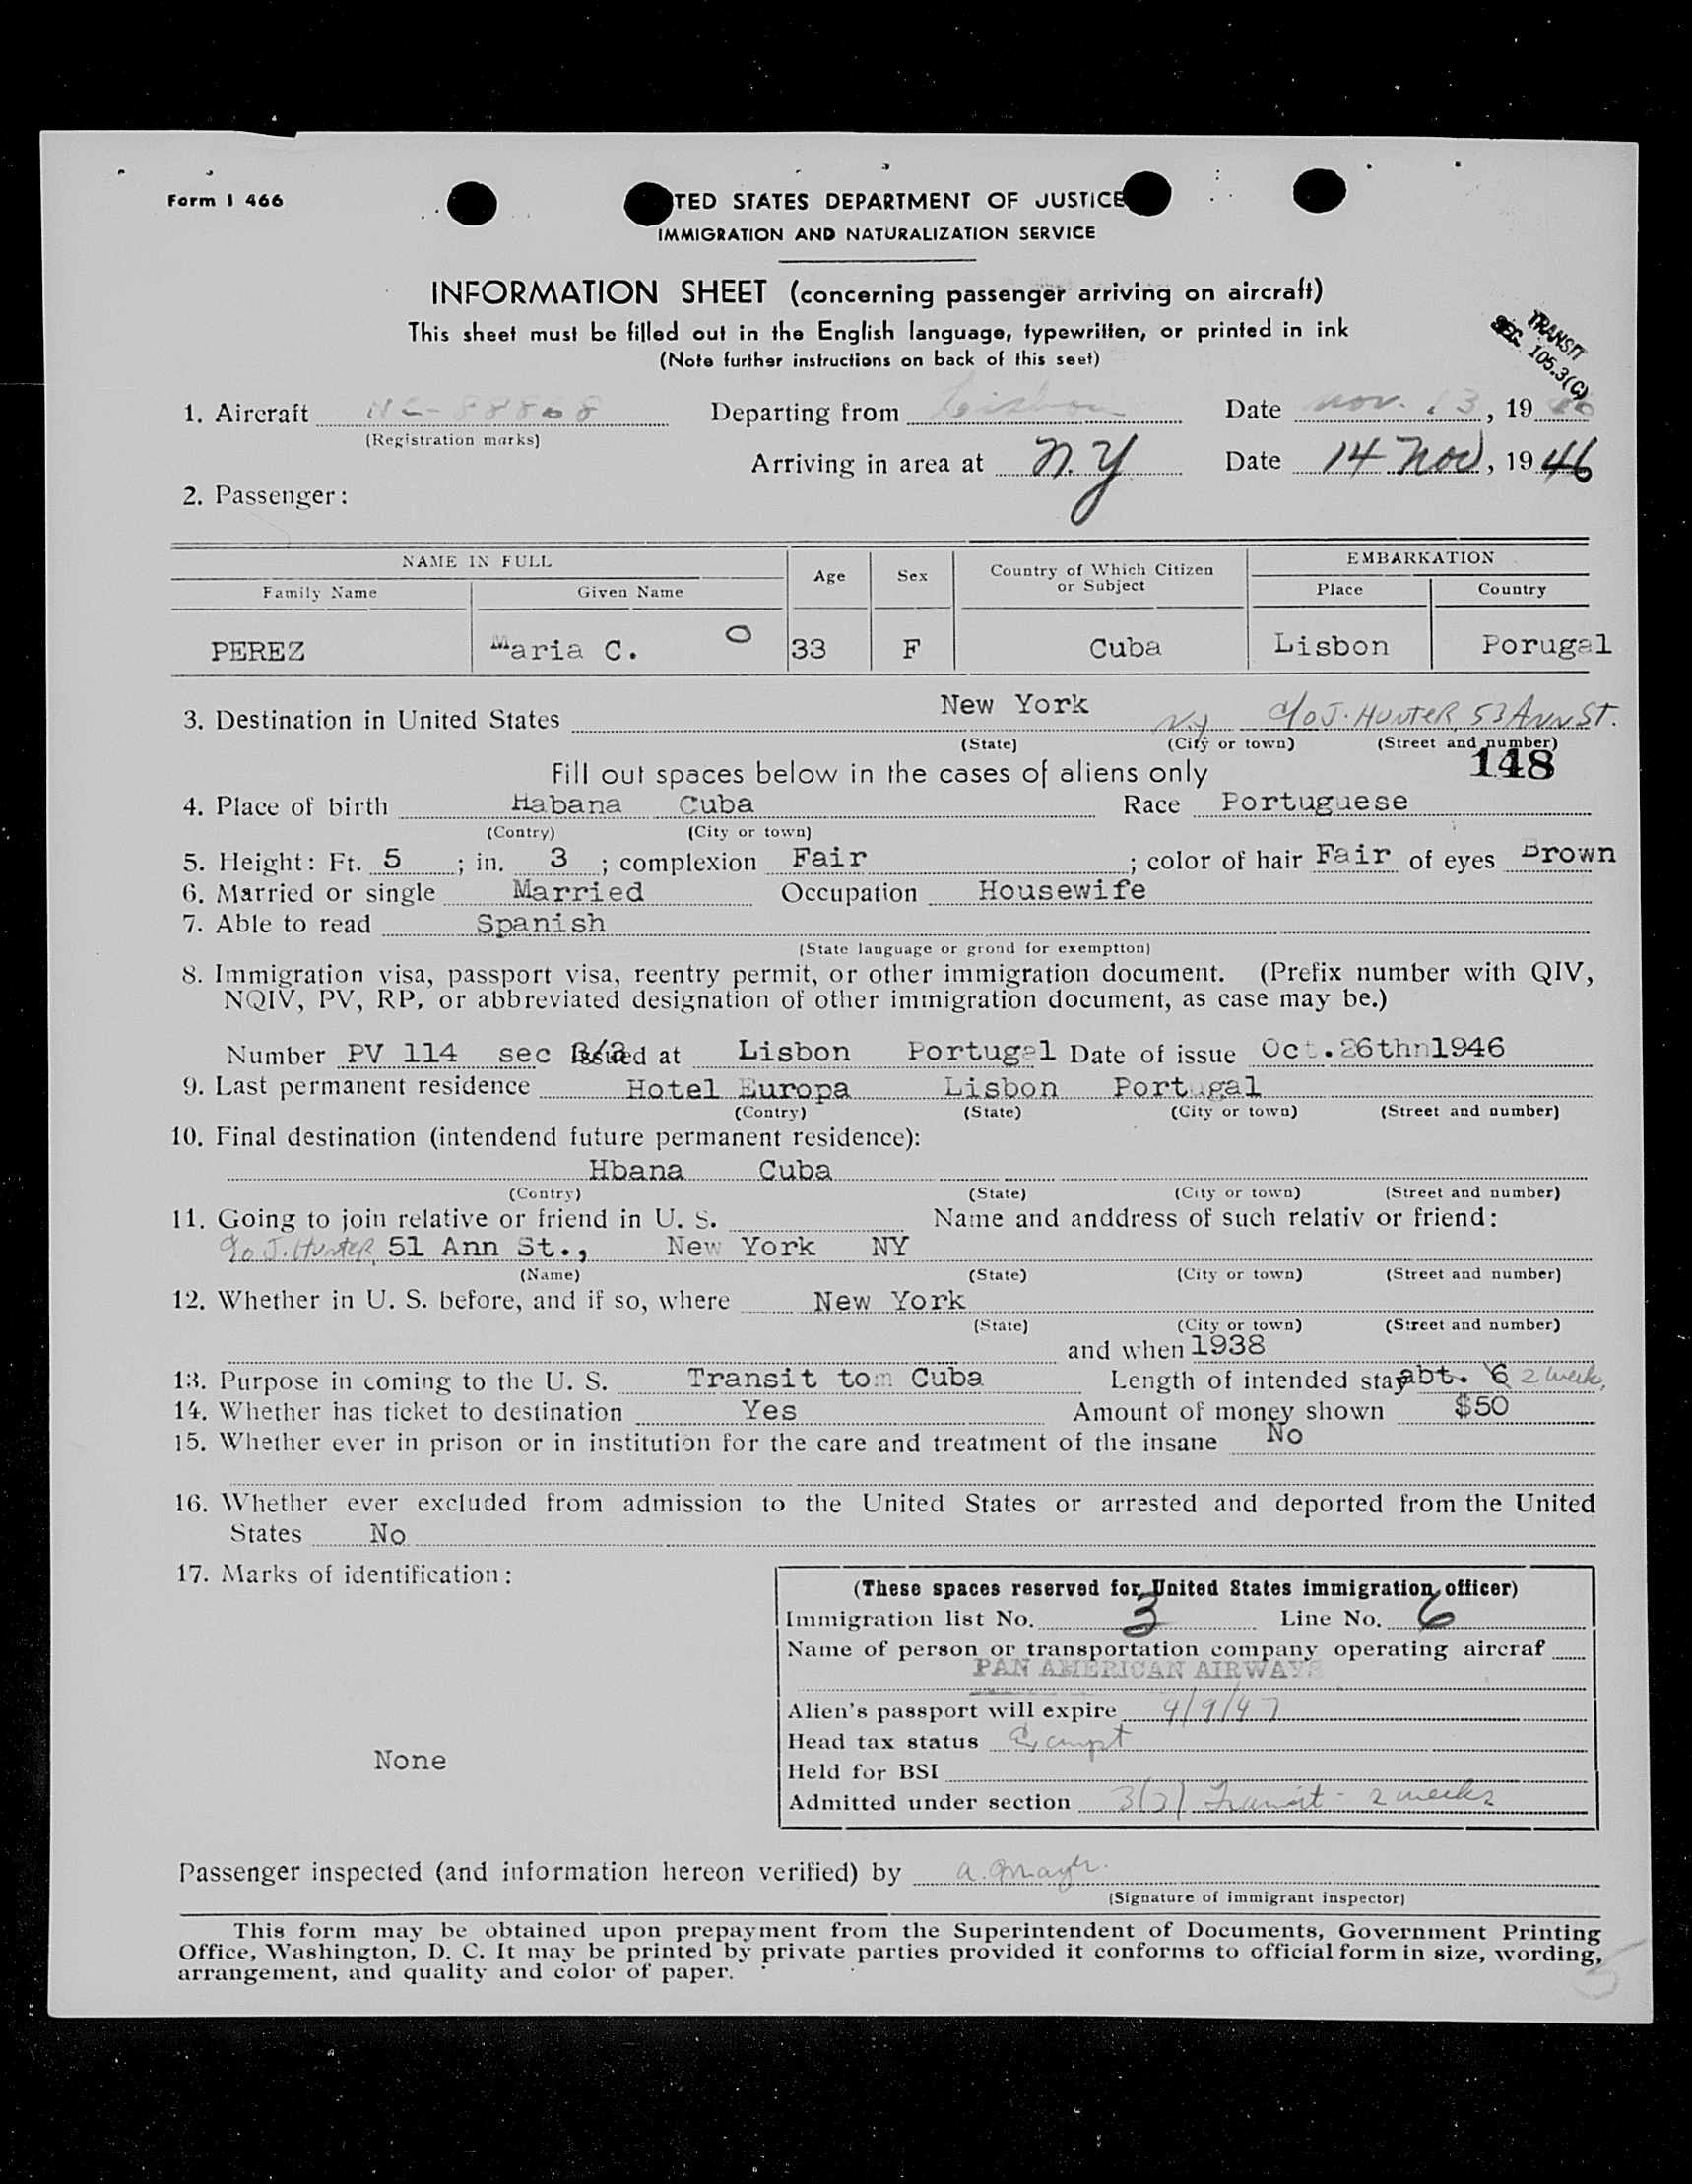 Form I 466
TED STATES DEPARTMENT OF JUSTICE
IMMIGRATION AND NATURALIZATION SERVICE
INFORMATION SHEET (concerning passenger arriving on aircraft)
This sheet must be filled out in the English language, typewritten, or printed in ink
(Note further instructions on back of this seet)
TRANSIT
SEC. 105.3(C)
1. Aircraft NC-88868 Departing from Lisbon Date Nov. 13, 19 46
(Registration marks)
Arriving in area at N.Y Date 14 Nov, 19 46
2. Passenger:
NAME IN FULL Age Sex Country of Which Citizen or Subject EMBARKATION
Family Name Given Name Place Country
PEREZ Maria C. O 33 F Cuba Lisbon Porugal
3. Destination in United States New York NY c/o J. HUNTER, 53 ANN ST.
(State) (City or town) (Street and number)
148
Fill out spaces below in the cases of aliens only
4. Place of birth Habana Cuba Race Portuguese
(Contry) (City or town)
5. Height: Ft. 5 ; in. 3 ; complexion Fair ; color of hair Fair of eyes Brown
6. Married or single Married Occupation Housewife
7. Able to read Spanish
(State language or grond for exemption)
8. Immigration visa, passport visa, reentry permit, or other immigration document. (Prefix number with QIV,
NQIV, PV, RP, or abbreviated designation of other immigration document, as case may be.)
Number PV 114 sec 3/3 Issued at Lisbon Portugal Date of issue Oct.26thn1946
9. Last permanent residence Hotel Europa Lisbon Portugal
(Contry) (State) (City or town) (Street and number)
10. Final destination (intendend future permanent residence):
Hbana Cuba
(Contry) (State) (City or town) (Street and number)
11. Going to join relative or friend in U. S. Name and anddress of such relativ or friend:
c/o J. Hunter, 51 Ann St., New York NY
(Name) (State) (City or town) (Street and number)
12. Whether in U. S. before, and if so, where New York
(State) (City or town) (Street and number)
and when 1938
13. Purpose in coming to the U. S. Transit tom Cuba Length of intended stay abt. 6 2 weeks
14. Whether has ticket to destination Yes Amount of money shown $50
15. Whether ever in prison or in institution for the care and treatment of the insane No
16. Whether ever excluded from admission to the United States or arrested and deported from the United
States No
17. Marks of identification:
None
(These spaces reserved for United States immigration officer)
Immigration list No. 3 Line No. 6
Name of person or transportation company operating aircraf
PAN AMERICAN AIRWAYS
Alien's passport will expire 4/9/47
Head tax status Exempt
Held for BSI
Admitted under section 3(3) Transit - 2 weeks
Passenger inspected (and information hereon verified) by
(Signature of immigrant inspector)
This form may be obtained upon prepayment from the Superintendent of Documents, Government Printing
Office, Washington, D. C. It may be printed by private parties provided it conforms to official form in size, wording,
arrangement, and quality and color of paper.